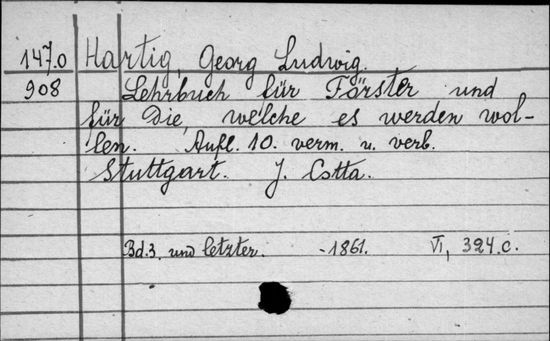 147.0 Hartig, Georg Ludwig.
908 Lehrbuch für Förster und
für die, welche es werden wol-
len. Aufl. 10. verm. u. verb.
Stuttgart. J. Cotta.
Bd.3. und letzter. -1861. VI, 324.c.